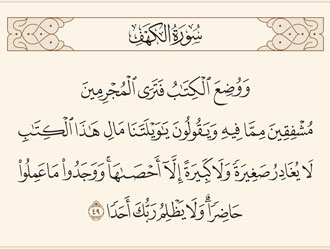 سُورَةُ الكَهْفِ
وَوُضِعَ ٱلْكِتَٰبُ فَتَرَى ٱلْمُجْرِمِينَ
مُشْفِقِينَ مِمَّا فِيهِ وَيَقُولُونَ يَٰوَيْلَتَنَا مَالِ هَٰذَا ٱلْكِتَٰبِ
لَا يُغَادِرُ صَغِيرَةً وَلَا كَبِيرَةً إِلَّآ أَحْصَىٰهَا ۚ وَوَجَدُوا۟ مَا عَمِلُوا۟
حَاضِرًا ۗ وَلَا يَظْلِمُ رَبُّكَ أَحَدًا ۝٤٩